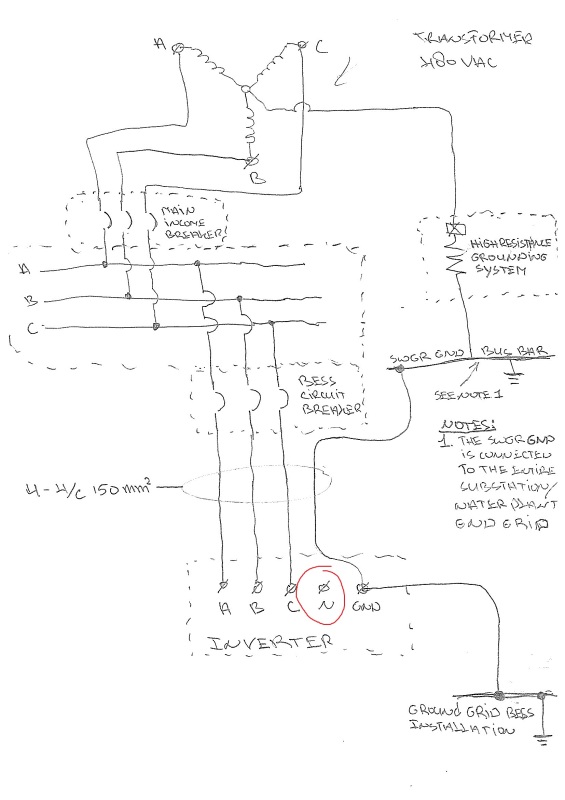 TRANSFORMER
480 VAC
A
C
B
MAIN
INCOME
BREAKER
HIGH RESISTANCE
GROUNDING
SYSTEM
A
B
C
SWGR GND BUS BAR
SEE NOTE 1
BESS
CIRCUIT
BREAKER
NOTES:
1. THE SWGR GND
IS CONNECTED
TO THE ENTIRE
SUBSTATION/
WATER PLANT
GND GRID
4-4/C 150 mm²
A B C N GND
INVERTER
GROUND GRID BESS
INSTALLATION